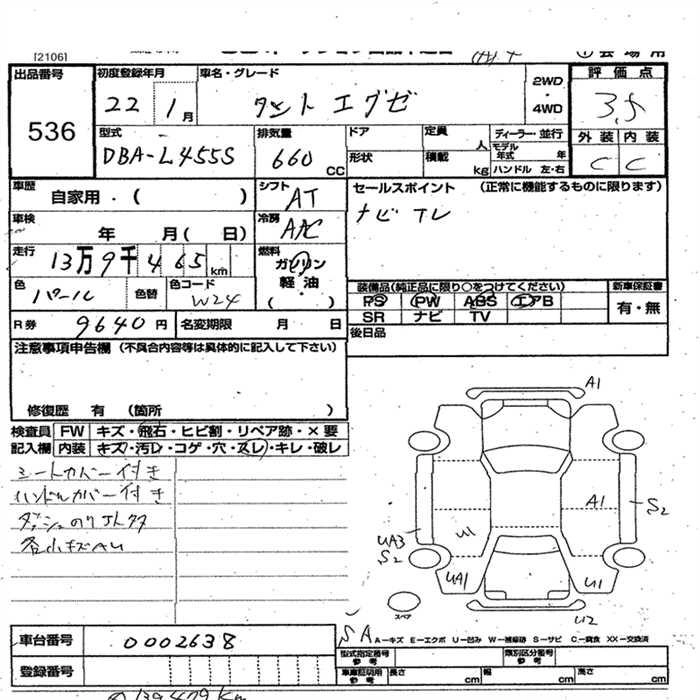 [2106]
出品番号 初度登録年月 車名・グレード 2WD ・ 4WD 評価点
536 22 1月 タント エグゼ 3.5
型式 排気量 ドア 定員 人 ディーラー・並行 外装 内装
DBA-L455S 660 CC 形状 積載 kg モデル年式 年 ハンドル 左・右 C C
車歴 自家用・( ) シフト AT セールスポイント (正常に機能するものに限ります)
車検 年 月( 日) 冷房 AAC ナビ TV
走行 13万9千465km 燃料 ガソリン 軽油 ( )
色 パール 色替 色コード W24 装備品(純正品に限り○をつけてください) 新車保証書
PS PW ABS エアB 有・無
R券 9640円 名変期限 月 日 SR ナビ TV
注意事項申告欄 (不具合内容等は具体的に記入して下さい) 後日品
修復歴 有 (箇所 )
検査員 FW キズ・飛石・ヒビ割・リペア跡・×要
記入欄 内装 キズ・汚レ・コゲ・穴・スレ・キレ・破レ
シートカバー付き
ハンドルカバー付き
ダッシュのり
各小キズ
A1
A1
S2
U1
UA3
S2
UA1
U1
スペア
U2
SA A−キズ E−エクボ U−凹み W−補修跡 S−サビ C−腐食 XX−交換済
車台番号 0002638 型式指定番号 参考 類別区分番号 参考
登録番号 車庫証明用 参考 長さ cm 幅 cm 高さ cm
139479 Km